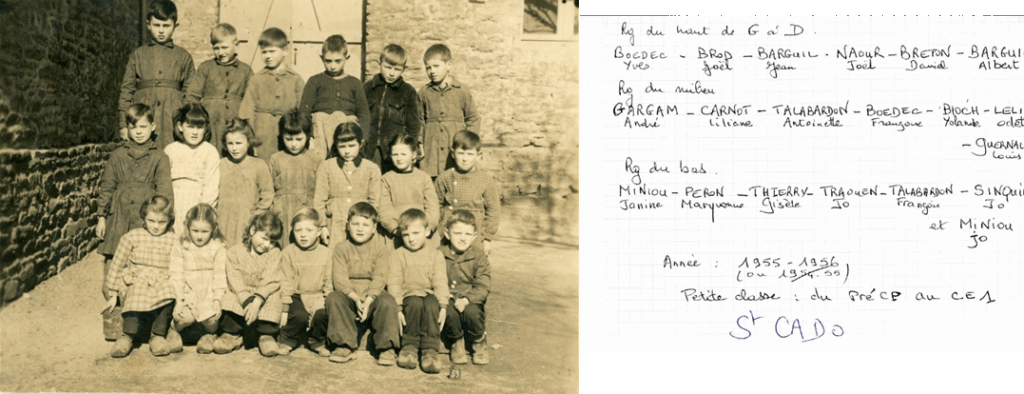 Rg du haut de G à D.
BOEDEC - BROD - BARGUIL - NAOUR - BRETON - BARGUI
Yves Joël Jean Joël Daniel Albert
Rg du milieu
GARGAM - CARNOT - TALABARDON - BOEDEC - BIOC'H - LEL
André Liliane Antoinette Françoise Yolande Odet
- GUERNAL
Louis
Rg du bas.
MINIOU - PERON - THIERRY - TRAOUEN - TALABARDON - SINQUI
Janine Maryvonne Gisèle Jo François Jo
et MINIOU
Jo
Année : 1955 - 1956
(ou 1954-55)
Petite classe : du Pré CP au CE1
St CADO